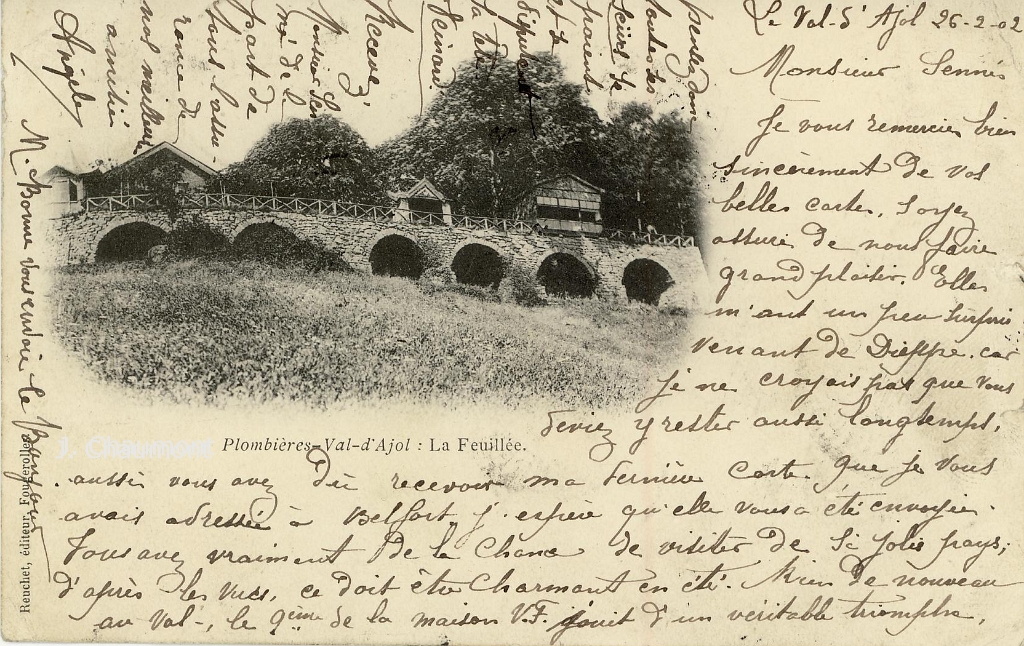 Le Val-d'Ajol 26-2-02
Monsieur
Je vous remercie bien
sincèrement de vos
belles cartes, Soyez
assuré de nous faire
grand plaisir. Elles
m'ont un peu surprise
venant de Dieppe, car
je ne croyais pas que vous
deviez y rester aussi longtemps,
aussi vous avez dû recevoir ma dernière carte que je vous
avais adressée à Belfort j'espère qu'elle vous a été envoyée.
Vous avez vraiment de la chance de visiter de si jolis pays;
d'après les vues, ce doit être charmant en été. Rien de nouveau
au Val-, le 9ème de la maison V.F. jouit d'un véritable triomphe,
pendant
toutes les
soirs se
et le
député
la
Recevez,
Monsieur
de la
part de
tous l'assu-
rance de
nos meilleurs
amitiés
Angèle
M. Bonne vous envoie le Bonjour
Plombières-Val-d'Ajol : La Feuillée.
Reuchet, éditeur, Fougerolles
J. Chaumont